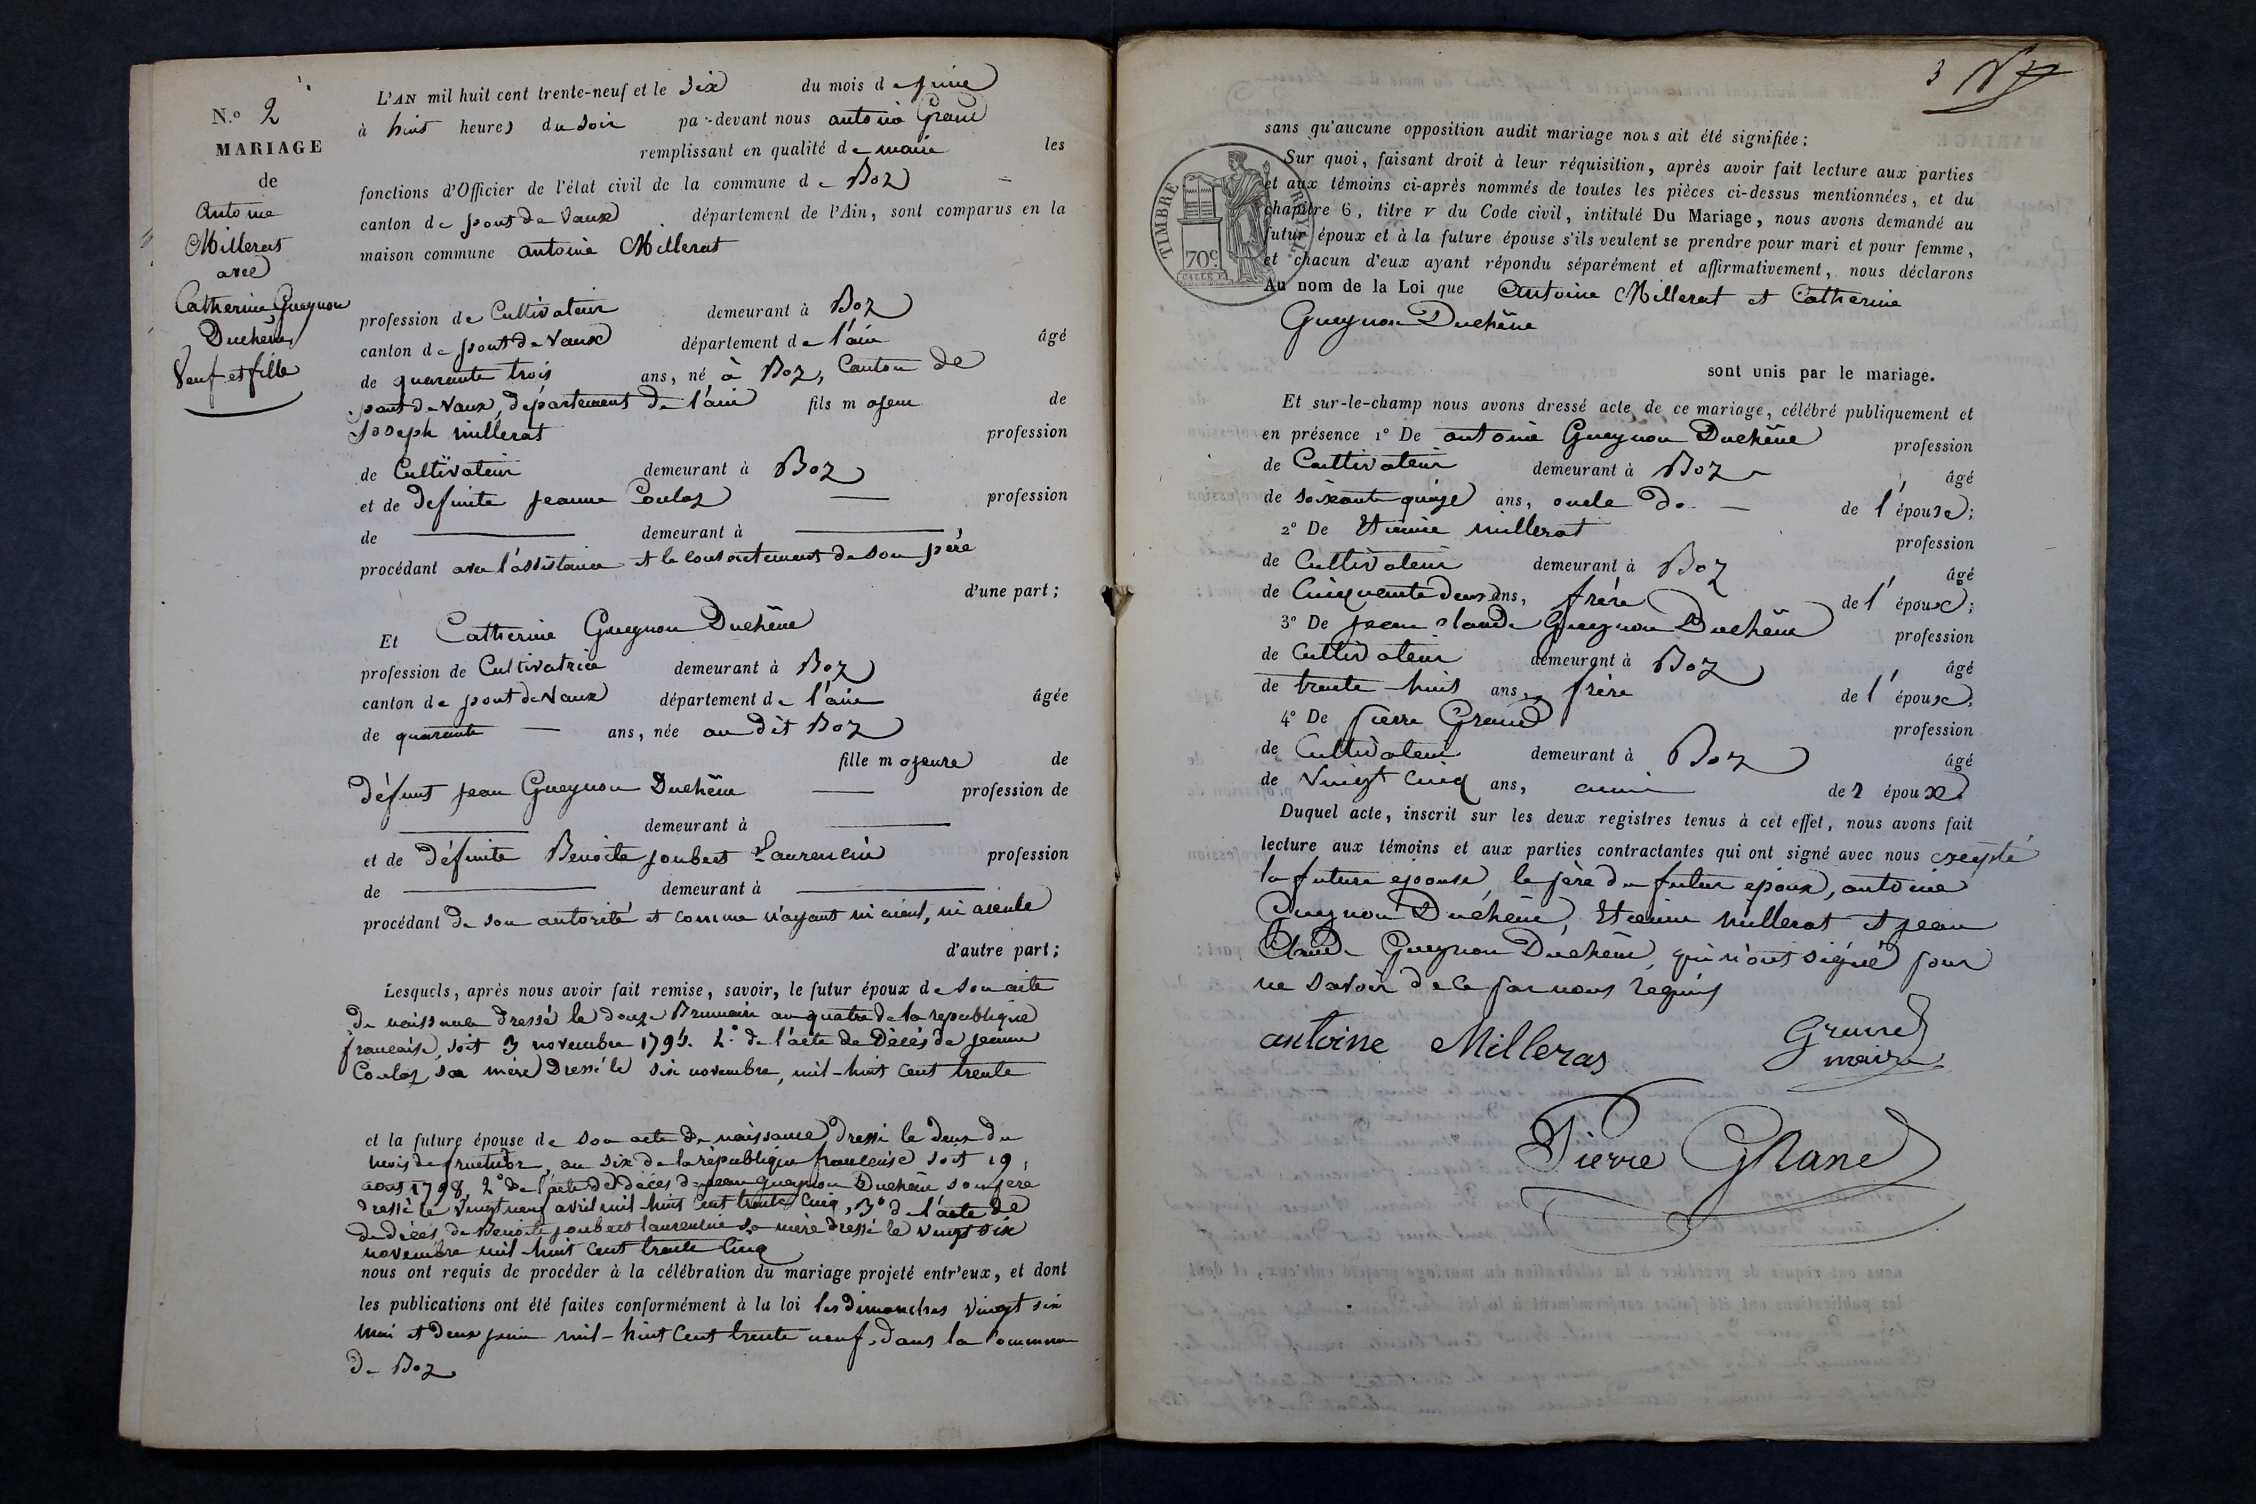 N.o 2
MARIAGE
de
Antoine
Millerat
avec
Catherine Gueynon
Duchêne
Veuf et fille
L'AN mil huit cent trente-neuf et le six du mois de juin
à huit heures du soir par-devant nous antoine Grand
remplissant en qualité de maire les
fonctions d'Officier de l'état civil de la commune de Boz
canton de pont de Vaux département de l'Ain, sont comparus en la
maison commune antoine Millerat
profession de Cultivateur demeurant à Boz
canton de pont de Vaux département de l'ain âgé
de quarante trois ans, né à Boz, Canton de
pont de Vaux, département de l'ain fils majeur de
Joseph millerat profession
de Cultivateur demeurant à Boz
et de defunte jeanne Coulas profession
de demeurant à
procédant avec l'assistance et le consentement de son père
d'une part;
Et Catherine Gueynon Duchêne
profession de Cultivatrice demeurant à Boz
canton de pont de Vaux département de l'ain âgée
de quarante ans, née au dit Boz
fille majeure de
défunt jean Gueynon Duchêne profession de
demeurant à
et de défunte Benoite joubert Laurencin profession
de demeurant à
procédant de son autorité et comme n'ayant ni aieul, ni aieule
d'autre part;
Lesquels, après nous avoir fait remise, savoir, le futur époux de son acte
de naissance dressé le douze Brumaire an quatre de la republique
française, soit 3 novembre 1795. 2.° de l'acte de Décès de jeanne
Coulas, sa mère Dressé le six novembre, mil-huit cent trente
et la future épouse de son acte de naissance dressé le deux du
mois de fructidor, an six de la république française soit 19
aout 1798, 2° de l'acte de décès de jean gueynon Duchêne son père
dressé le vingt neuf avril mil-huit cent trente cinq, 3° de l'acte de
de décès, de Benoite joubert laurencin sa mère dressé le vingt six
novembre mil-huit cent trente cinq
nous ont requis de procéder à la célébration du mariage projeté entr'eux, et dont
les publications ont été faites conformément à la loi les dimanches vingt six
mai et deux juin mil-huit cent trente neuf, dans la commune
de Boz
3
sans qu'aucune opposition audit mariage nous ait été signifiée;
Sur quoi, faisant droit à leur réquisition, après avoir fait lecture aux parties
et aux témoins ci-après nommés de toutes les pièces ci-dessus mentionnées, et du
chapitre 6, titre v du Code civil, intitulé Du Mariage, nous avons demandé au
futur époux et à la future épouse s'ils veulent se prendre pour mari et pour femme,
et chacun d'eux ayant répondu séparément et affirmativement, nous déclarons
Au nom de la Loi que Antoine Millerat et Catherine
Gueynon Duchêne
TIMBRE ROYAL
70c
sont unis par le mariage.
Et sur-le-champ nous avons dressé acte de ce mariage, célébré publiquement et
en présence 1° De antoine Gueynon Duchêne profession
de Cultivateur demeurant à Boz âgé
de soixante quinze ans, oncle de de l'épouse;
2° De Etienne millerat profession
de Cultivateur demeurant à Boz âgé
de Cinquante deux ans, frère de l'époux;
3° De jean claude Gueynon Duchêne profession
de Cultivateur demeurant à Boz âgé
de trente-huit ans, frère de l'épouse,
4° De pierre Grand profession
de Cultivateur demeurant à Boz âgé
de Vingt Cinq ans, ami de l époux.
Duquel acte, inscrit sur les deux registres tenus à cet effet, nous avons fait
lecture aux témoins et aux parties contractantes qui ont signé avec nous excepté
la future epouse, le père du futur epoux, antoine
Gueynon Duchêne, Etienne millerat et jean
Claude Gueynon Duchêne, qui n'ont signé pour
ne savoir de ce par nous requis
antoine Milleras
Grand
maire
Pierre GRand